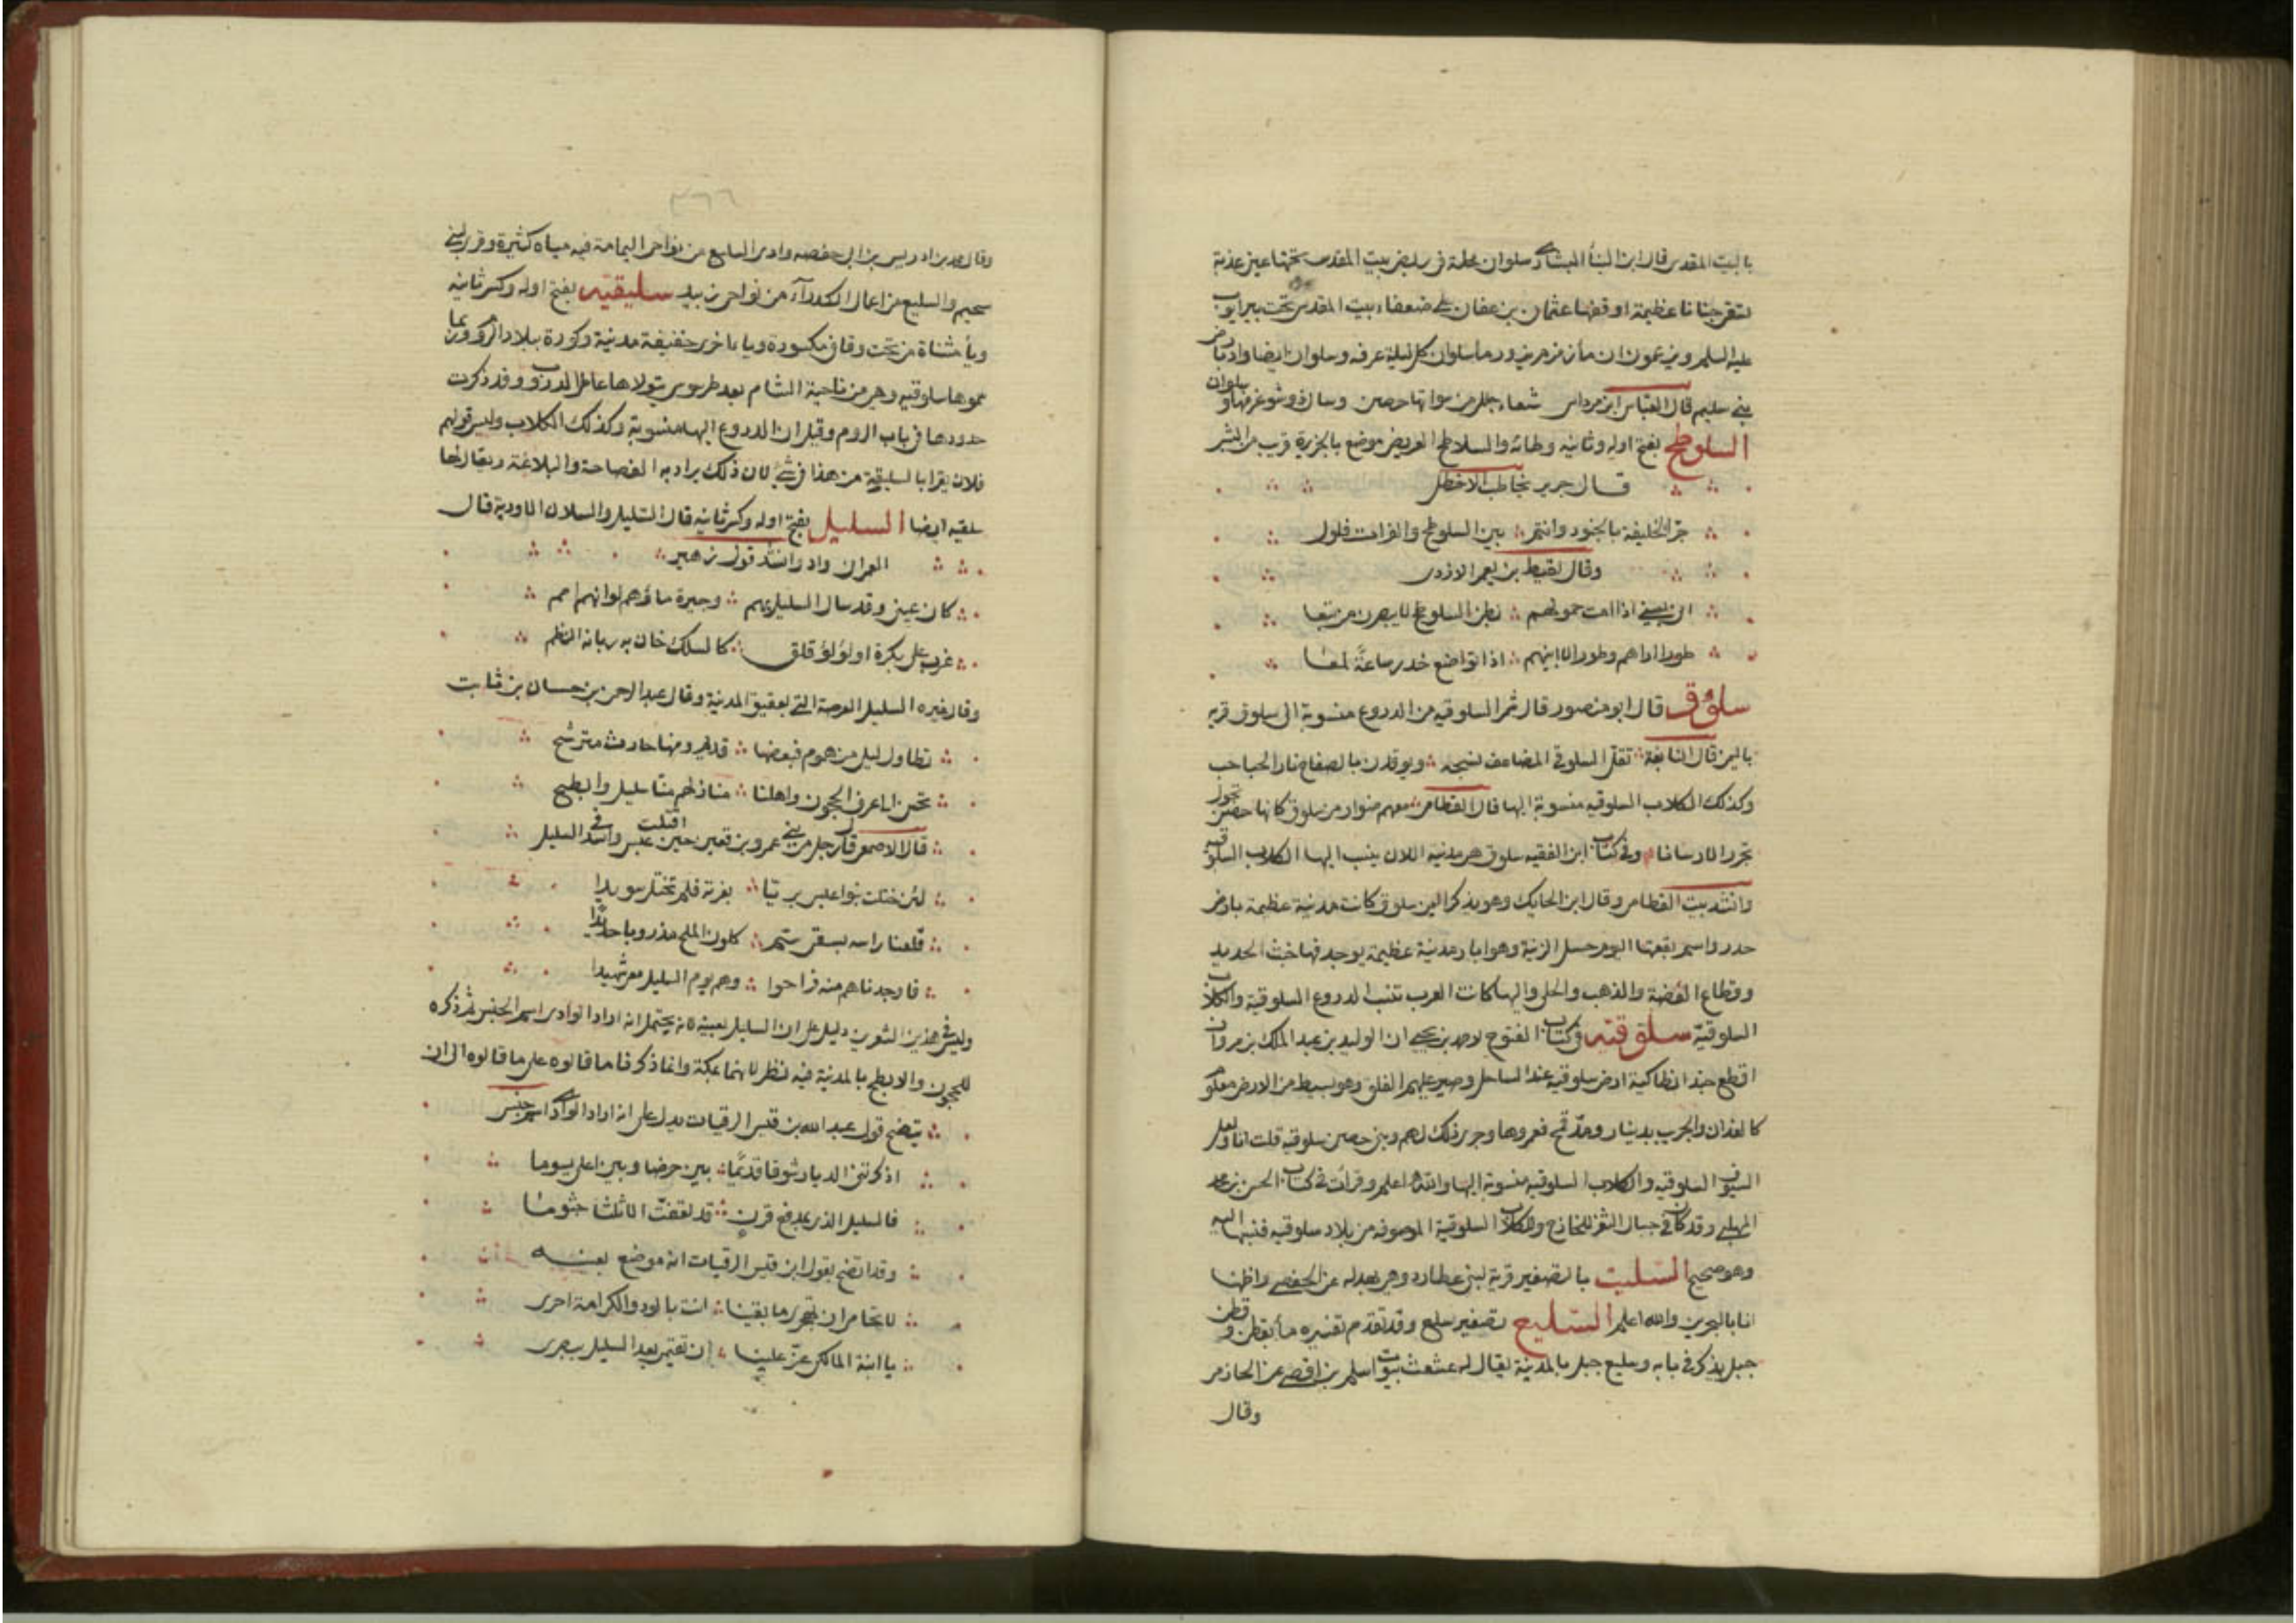 بالبيت المقدس قال ابن البنأ البشاري سلوان محلة في ربض بيت المقدس تحتها عين عذبة
تسقي جنانا عظيمة اوقفها عثمان بن عفان على ضعفاء بيت المقدس تحت بير ايوب
عليه السلم ويزعمون ان مأ زمزم يزور مأ سلوان كل ليلة عرفه وسلوان ايضا واد بارض
بني سليم قال العباس ابن مرداس شنعاء جلل من سواتها حضن وسال ذو شوغر منها وسلوان
السلوطح بفتح اوله وثانيه وطائه والسلاطح العريض موضع بالجزيرة قريب من البشر
قال جرير يخاطب الاخطل
جر الخليفة بالجنود وانتم بين السلوطح والفرات فلول
وقال لقيط بن يعمر الازدي
اني بعيني اذا امت حمولهم بطن السلوطح لا ينصرن من تبعا
طورا اراهم وطورا لا ابينهم اذا تواضع خدر ساعة لمعا
سلوق قال ابو منصور قال شمر السلوقيه من الدروع منسوبة الى سلوق قرية
باليمن قال النابغة تقد السلوقي المضاعف نسجه ويوقدن بالصفاح نار الحباحب
وكذلك الكلاب السلوقيه منسوبة اليها قال القطامي معهم ضوار من سلوق كانها حصن تجول
تجرر الارسانا وفي كتاب ابن الفقيه سلوق هي مدينة اللان ينسب اليها الكلاب السلوقيه
وانشد بيت القطامي وقال ابن الحايك وهو يذكر اليمن سلوق كانت مدينة عظيمة بارض
حدير واسم بقعتها اليوم حسل الزينة وهو ابار مدينة عظيمة يوجد فيها خبث الحديد
وقطاع الفضة والذهب والحلي واليها كانت العرب تنسب الدروع السلوقية والكلاب
السلوقية سلوقيه في كتاب الفتوح لاحمد بن يحيى ان الوليد بن عبد الملك بن مروان
اقطع جند انطاكية ارض سلوقيه عند الساحل وصير عليهم الفلق وهو بسيط من الارض معلوم
كالفدان والجريب بدينار ومدي قمح فعمروها وجرى ذلك لهم وبنى حصن سلوقيه قلت انا ولعل
السيوف السلوقيه والكلاب السلوقيه منسوبة اليها والله اعلم وقرات في كتاب الحسن بن محمد
المهلبي وقد كان في جبال الثغر للخازج والكلاب السلوقية الموصوفه من بلاد سلوقيه فنسبها اليه
وهو صحيح السليت بالتصغير قرية لبني عطارد وهي بعدله عن الحفصي واظنها
انها بالبحرين والله اعلم السليع تصغير سلع وقد تقدم تفسيره مأ بقطن وقطن
جبل يذكر في بابه وسليع جبل بالمدينة يقال له عثعث بيوت اسلم بن افصى عن الحازمي
وقال
٣٦٦
وقال محمد بن ادريس بن ابي حفصه وادي السليع من نواحي اليمامة فيه مياه كثيرة وقرى لبني
سحيم والسليع من اعمال الكدراء من نواحي زبيد سليقيه بفتح اوله وكسر ثانيه
ويأ مثناة من تحت وقاف مكسورة ويا باخرى خفيفة مدينة وكورة ببلاد الروم وربما
سموها سلوقيه وهي من ناحية الشام بعد طرسوس يتولاها عامل الدروب وقد ذكرت
حدودها في باب الروم وقيل ان الدروع اليها منسوبة وكذلك الكلاب وليس قولهم
فلان يقرا بالسليقية من هذا في شي لان ذلك يراد به الفصاحة والبلاغة ويقال لها
سلقيه ايضا السليل بفتح اوله وكسر ثانيه قال السليل والسلان الاودية قال
العمراني واد وانشد قول زهير
كان عيني وقد سال السليل بهم وجيرة ما وهم لو انهم امم
غرب على بكرة او لؤلؤ قلق كالسلك خان به ربانه النظم
وقال غيره السليل العرصة التي بعقيق المدينة وقال عبد الرحمن بن حسان بن ثابت
تطاول ليلي من هموم فبعضها قديم ومنها حادث مترشح
تحن الى عرف الحجون واهلنا منازلهم منا سليل وابطح
قال الاصمعي قال رجل من بني عمرو بن قعين حين اقبلت عبس واسد في السليل
لئن ختلت بنو عبس بريا بغرته فلم تختل سويدا
قلعنا راسه بسقي سم كلون الملح مذروبا حديدا
فاوجدناهم منه فراحوا وهم يوم السليل معي شهيدا
وليس في هذين الشعرين دليل على ان السليل بعينه لانه يحتمل انه اراد الوادي اسم الجنس ثم ذكره
للحجون والابطح بالمدينة فيه نظر لانهما بمكة وانما ذكرنا ما قالوه على ما قالوه الى ان
يتضح قول عبد الله بن قيس الرقيات يدل على انه اراد الوادي اسم جنس
اذكرتني الديار شوقا قديما بين حرضا وبين اعلى يسوما
فالسليل الذي بمدفع قرن قد تعفت الا ثلثا جثوما
وقد اتضح بقول ابن قيس الرقيات انه موضع بعينه
لا تخامى ان تهجري ما بقينا انت بالود والكرامة احرى
يا ابنة المالكي عز علينا ان تقيمي بعد السليل ببصرى